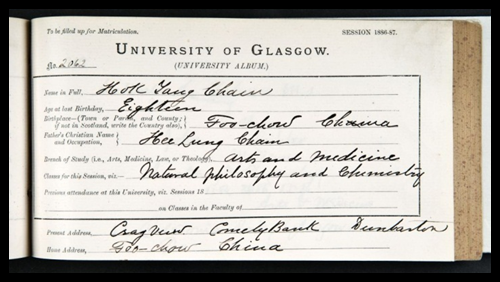 To be filled up for Matriculation. SESSION 1886-87.
UNIVERSITY OF GLASGOW.
No. 2062 (UNIVERSITY ALBUM.)
Name in Full, Hok Yang Chain
Age at last Birthday, Eighteen
Birthplace—(Town or Parish, and County; if not in Scotland, write the Country also), Foo-chow Chinna
Father's Christian Name and Occupation, Hee Lung Chain
Branch of Study (i.e., Arts, Medicine, Law, or Theology), Arts and Medicine
Classes for this Session, viz.— Natural philosophy and Chemistry
Previous attendance at this University, viz. Sessions 18
on Classes in the Faculty of
Present Address, Crag View Comely Bank Dumbarton
Home Address, Foo-chow China